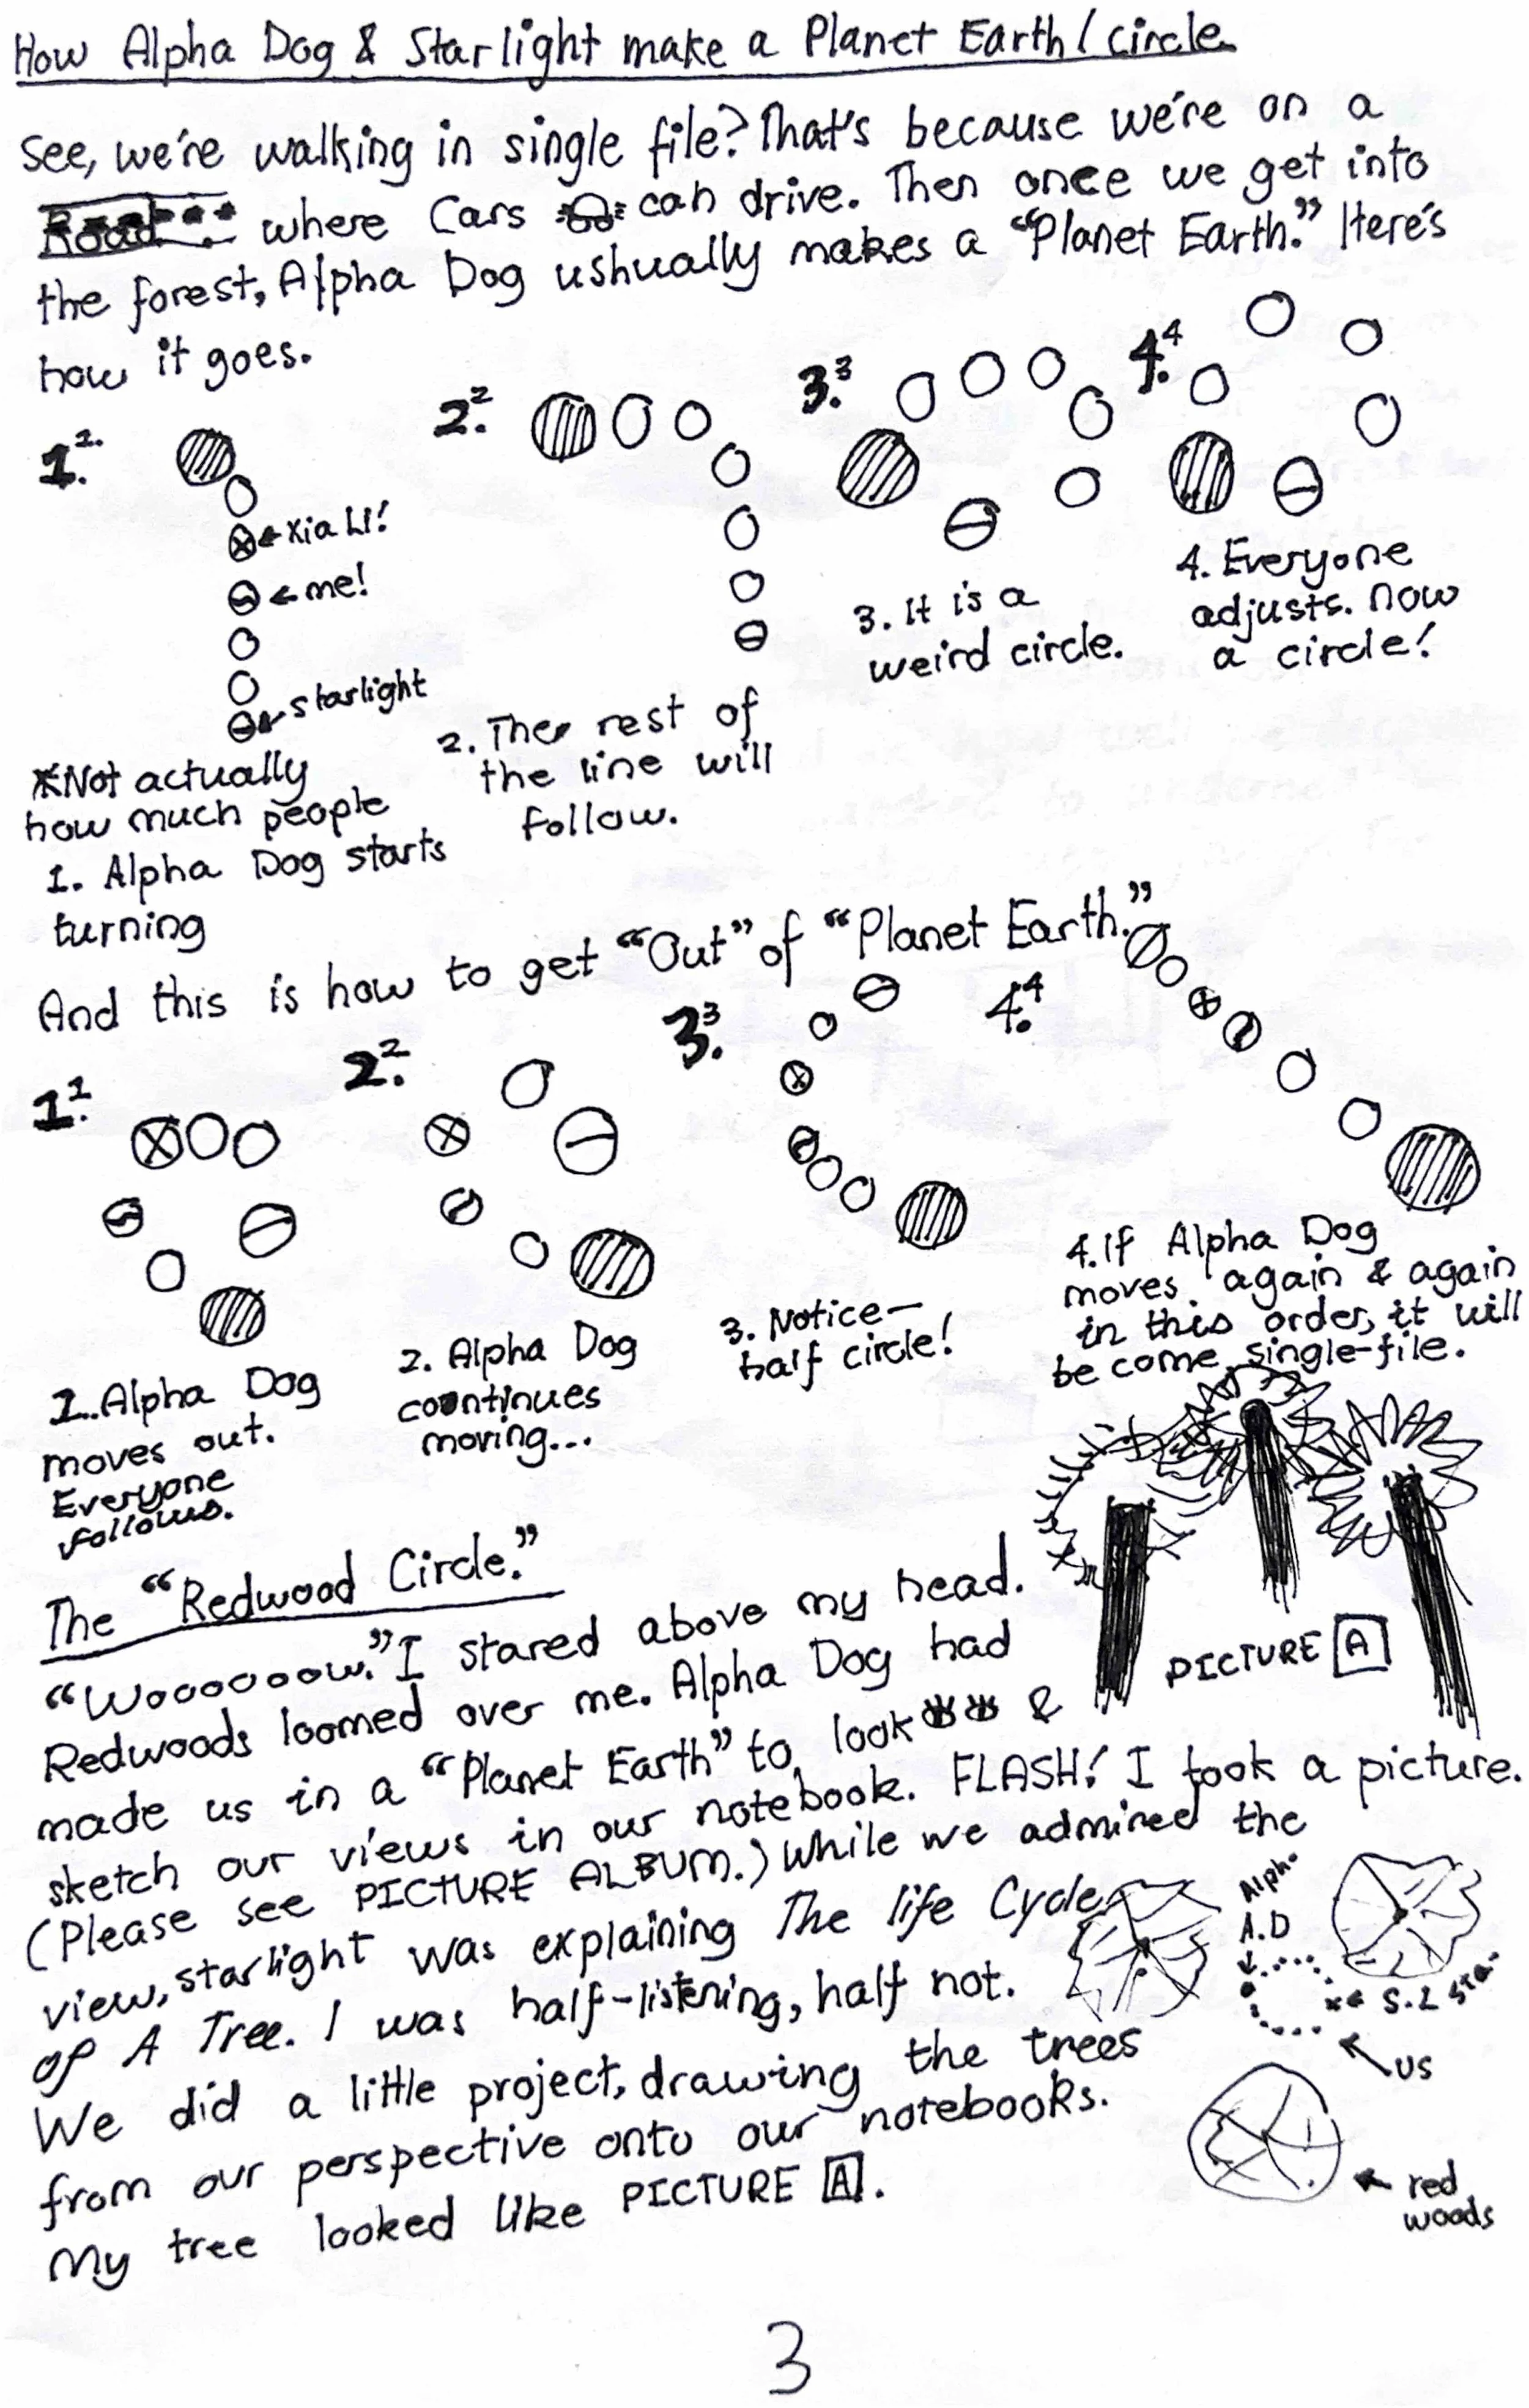 How Alpha Dog & Starlight make a Planet Earth/circle
See, we're walking in single file? That's because we're on a
Road where Cars can drive. Then once we get into
the forest, Alpha Dog ushually makes a "Planet Earth." Here's
how it goes.
1. 1.
←Xia Li!
←me!
starlight
*Not actually
how much people
1. Alpha Dog starts
turning
2. 2
2. The rest of
the line will
follow.
3. 3
3. It is a
weird circle.
4. 4
4. Everyone
adjusts. now
a circle!
And this is how to get "Out" of "Planet Earth."
1. 1
1. Alpha Dog
moves out.
Everyone
follows.
2. 2
2. Alpha Dog
continues
moving...
3. 3
3. Notice—
half circle!
4. 4
4. If Alpha Dog
moves again & again
in this order, it will
become single-file.
The "Redwood Circle."
"Woooooow." I stared above my head.
Redwoods loomed over me. Alpha Dog had
made us in a "Planet Earth" to look &
sketch our views in our notebook. FLASH! I took a picture.
(Please see PICTURE ALBUM.) While we admired the
view, starlight was explaining The life Cycle
of A Tree. I was half-listening, half not.
We did a little project, drawing the trees
from our perspective onto our notebooks.
My tree looked like PICTURE A.
PICTURE A
Alpha
A.D
← S.L Star
US
← red
woods
3